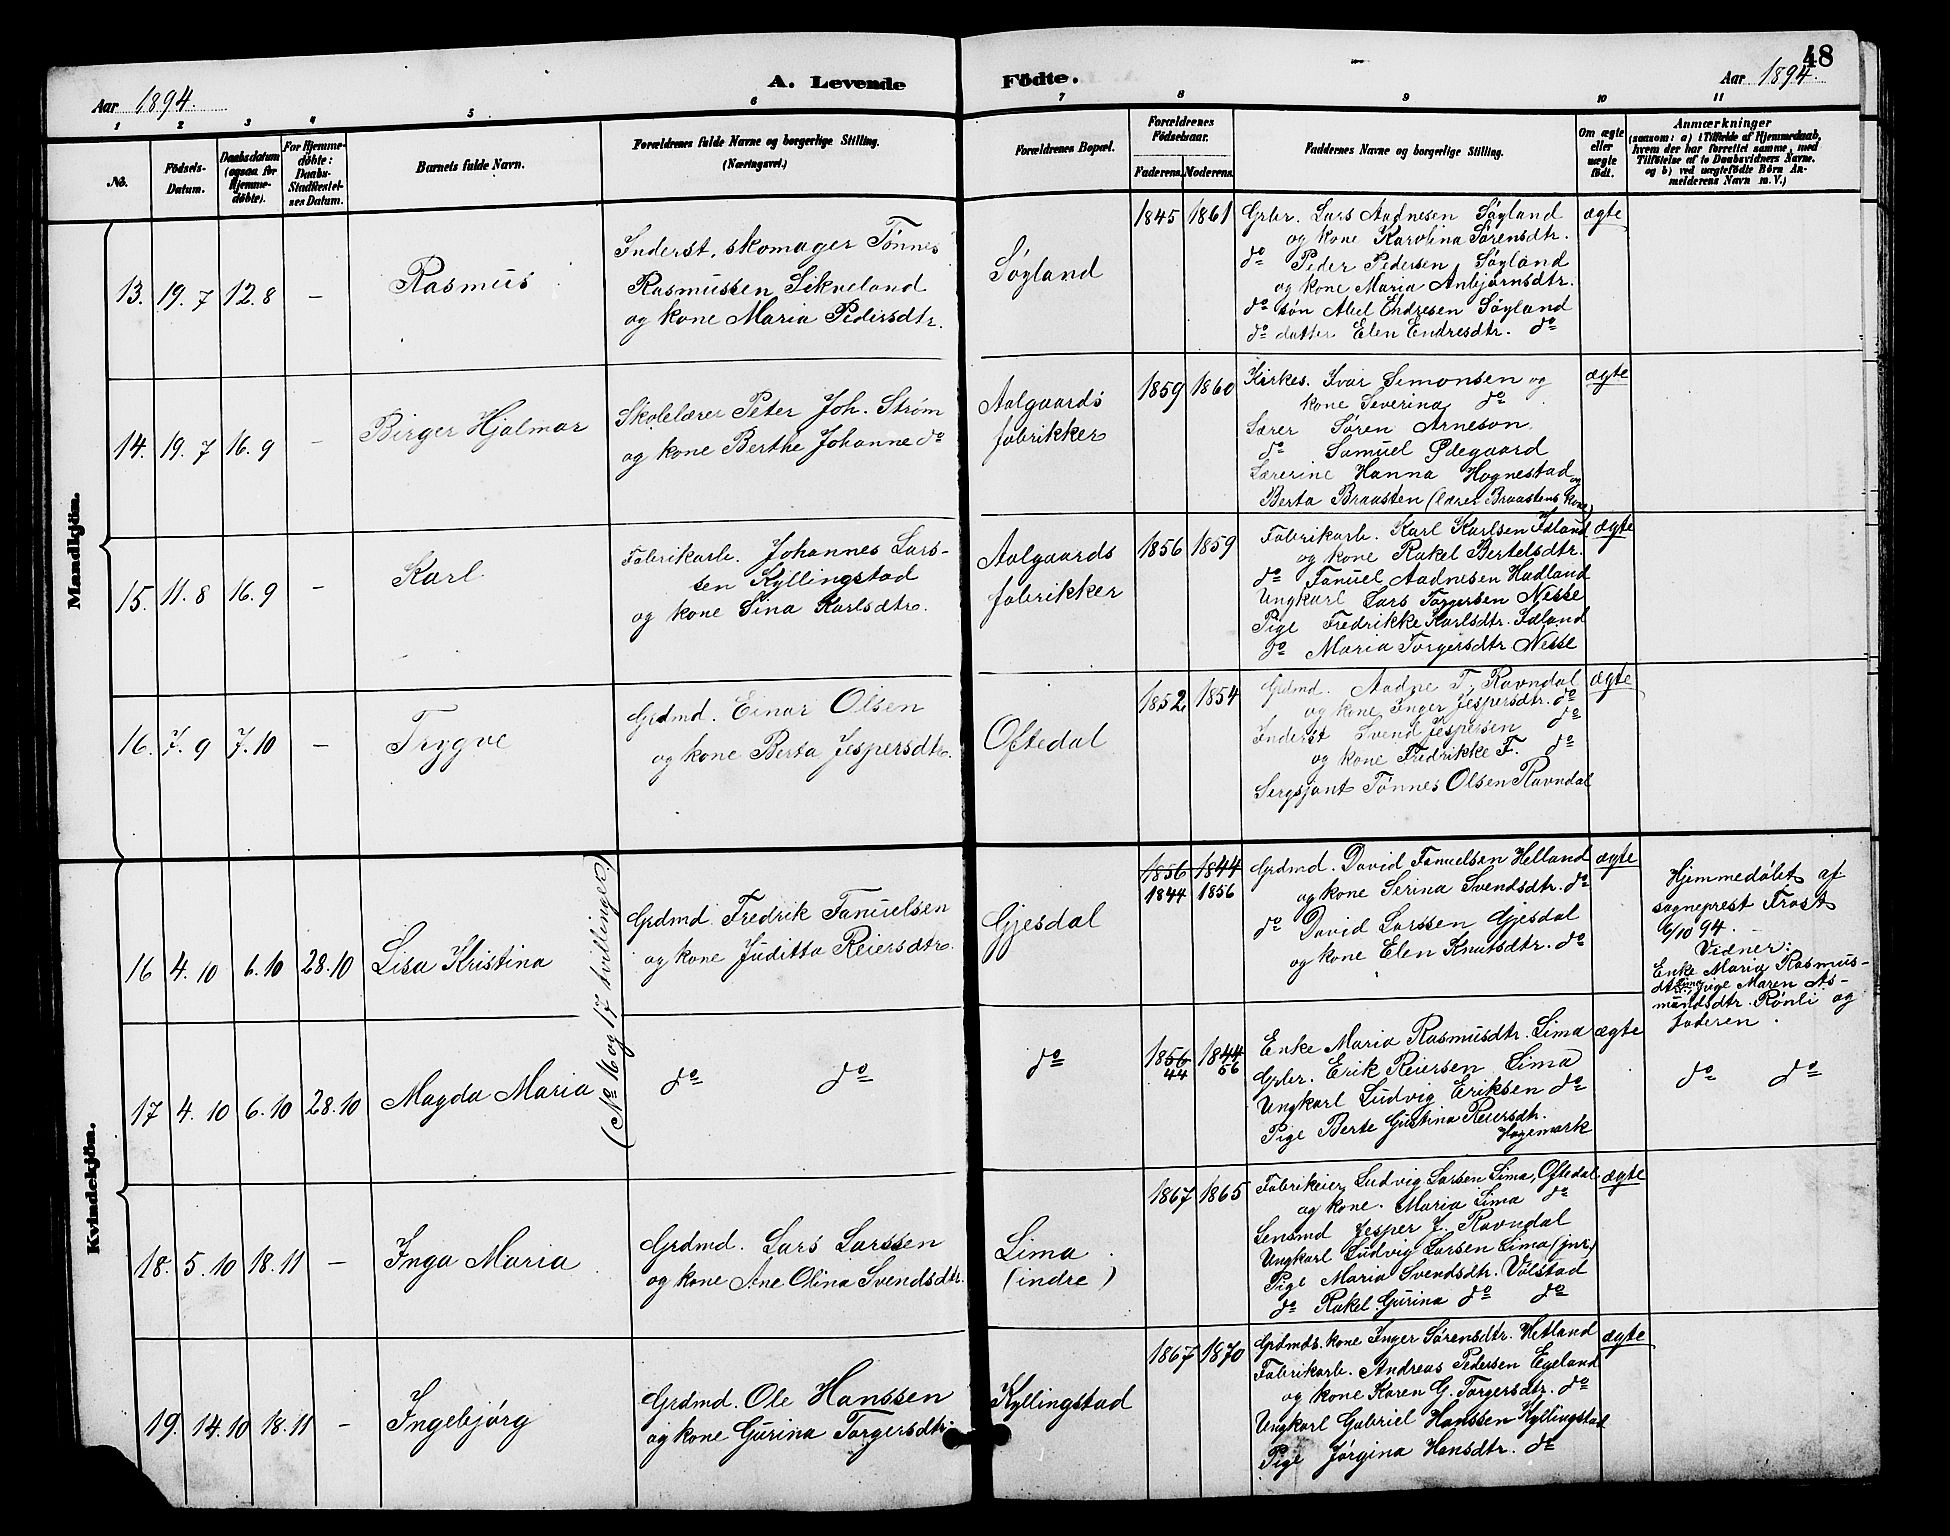 48
Aar 1894
A. Levende
Födte.
Aar 1894.
1 2 3 4 5 6 7 8 9 10 11
No.
Födsels-
Datum.
Daabsdatum
(ogsaa for
Hjemme-
döbte).
For Hjemme-
döbte:
Daabs-
Stadfæstel-
ses Datum.
Barnets fulde Navn.
Forældrenes fulde Navne og borgerlige Stilling.
(Næringsvei.)
Forældrenes Bopæl.
Forældrenes
Födselsaar.
Faderens. Moderens.
Faddernes Navne og borgerlige Stilling.
Om ægte
eller
uægte
født.
Anmærkninger
(saasom: a) i Tilfælde af Hjemmedaab,
hvem der har forrettet samme, med
Tilföielse af to Daabsvidners Navne.
og b) ved uægtefödte Börn An-
melderens Navn m. V.)
Mandkjön.
13. 19. 7 12. 8 –
Rasmus
Inderst, skomager Tønnes
Rasmussen Sikveland
og kone Maria Pedersdtr.
Søyland
1845 1861
Grbr. Lars Aadnesen Søyland
og kone Karolina Sørensdtr.
do Peder Pedersen Søyland
og kone Maria Anbjørnsdtr.
do søn Abel Endresen Søyland
do datter Elen Endresdtr. do
ægte
14. 19. 7 16. 9 –
Birger Hjalmar
Skolelærer Peter Joh. Strøm
og kone Berthe Johanne do
Aalgaards
fabrikker
1859 1860
Kirkes. Ivar Simonsen og
kone Severina do
Lærer Søren Arneson
do Samuel Ødegaard
Lærerine Hanna Hognestad og
Berta Braasten (lærer Braastens kone)
ægte
15. 11. 8 16. 9 –
Karl
Fabrikarb. Johannes Lars-
sen Kyllingstad
og kone Sina Karlsdtr.
Aalgaards
fabrikker
1856 1859
Fabrikarb. Karl Karlsen Idland
og kone Rakel Bertelsdtr.
do Tanuel Aadnesen Hadland
Ungkarl Lars Torgersen Nesse
Pige Fredrikke Karlsdtr. Idland
do Maria Torgersdtr Nesse
ægte
16. 7. 9 7. 10 –
Trygve
Grdmd. Einar Olsen
og kone Berta Jespersdtr.
Oftedal
1852 1854
Grdmd. Aadne T. Ravndal
og kone Inger Jespersdtr. do
Inderst Svend Jespersen do
og kone Fredrikke F. do
Sergsjant Tønnes Olsen Ravndal
ægte
Kvindekjön.
(No 16 og 17 tvillinger)
16 4. 10 6. 10 28. 10
Lisa Kristina
Grdmd. Fredrik Tanuelsen
og kone Juditta Reiersdtr.
Gjesdal
1856 1844
1844 1856
Grdmd. David Tanuelsen Helland
og kone Serina Svendsdtr. do
do David Larssen Gjesdal
og kone Elen Knutsdtr. do
ægte
Hjemmedøbt af
sogneprest Frost
6/10 94.
Vidner:
Enke Maria Rasmus-
dtr. Lima, pige Maren As-
mundsdtr. Rønli og
faderen.
17 4. 10 6. 10 28. 10
Magda Maria
do do
do
1856 1844
44 56
Enke Maria Rasmusdtr. Lima
Grbr. Erik Reiersen Lima
Ungkarl Ludvig Eriksen do
Pige Berte Gustina Reiersdtr.
Hagemark
ægte
do do
18. 5. 10 18. 11 –
Inga Maria
Grdmd. Lars Larssen
og kone Ane Olina Svendsdtr.
Lima
(indre)
1867 1865
Fabrikeier Ludvig Larsen Lima, Oftedal
og kone Maria Lima do
Lensmd Jesper J. Ravndal
Ungkarl Ludvig Larsen Lima (jnr.)
Pige Maria Svendsdtr. Vølstad
do Rakel Gurina do do
ægte
19. 14. 10 18. 11 –
Ingebjørg
Grdmd. Ole Hanssen
og kone Gurina Torgersdtr.
Kyllingstad
1867 1870
Grdmds. kone Inger Sørensdtr. Hetland
Fabrikarb. Andreas Pedersen Egeland
og kone Karen G. Torgersdtr. do
Ungkarl Gabriel Hanssen Kyllingstad
Pige Jørgina Hansdtr. do
ægte